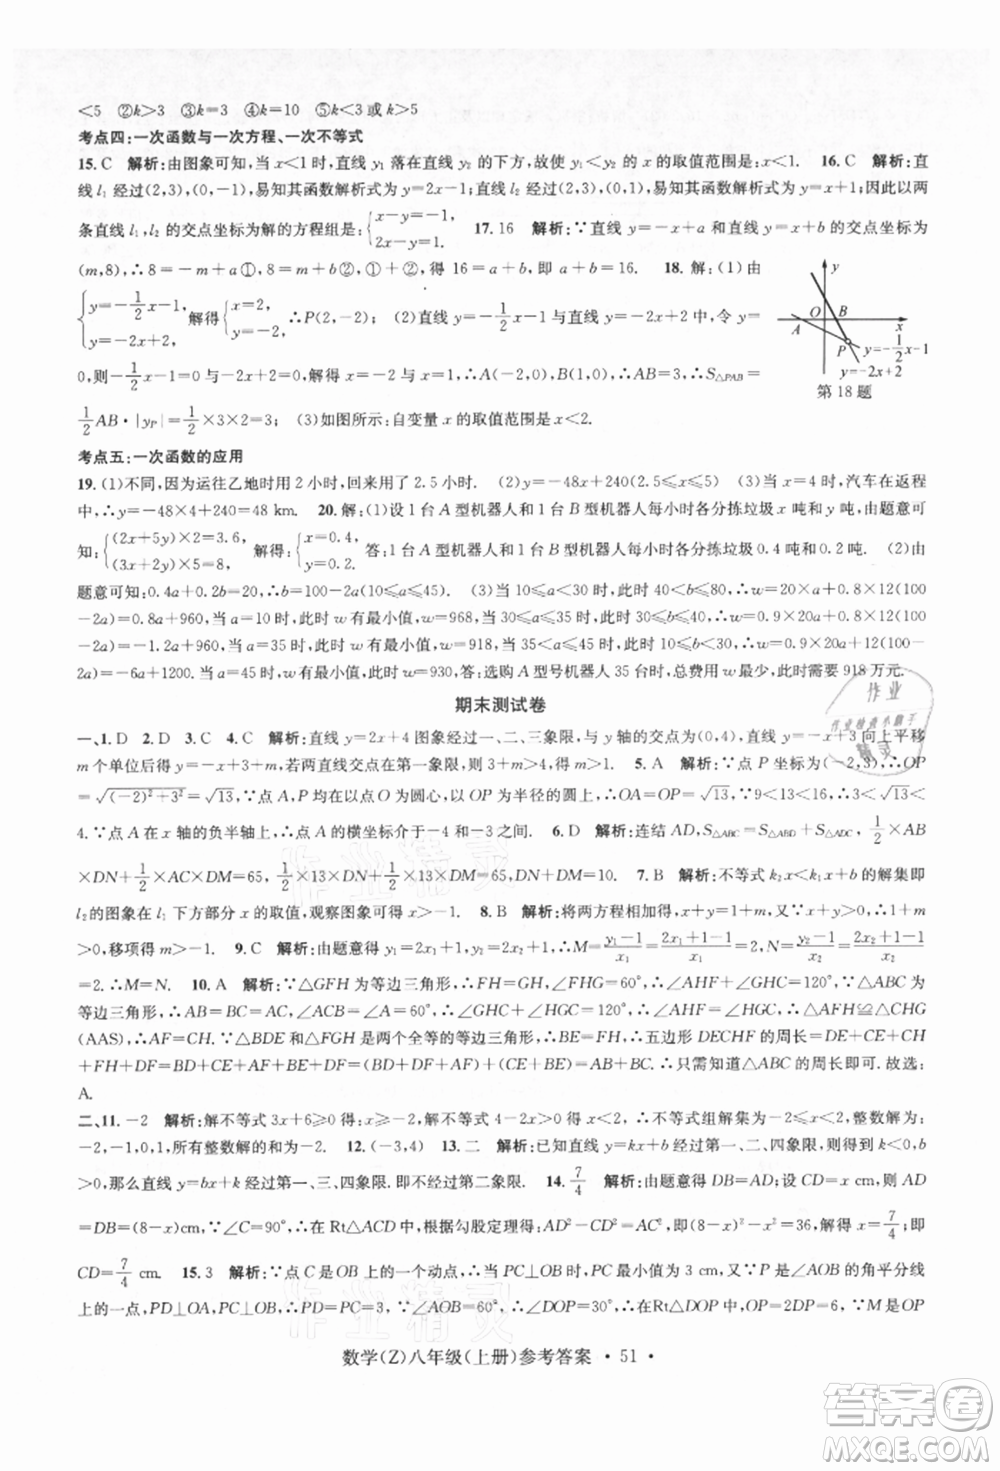 <5 ②k>3 ③k=3 ④k=10 ⑤k<3或k>5
考点四:一次函数与一次方程、一次不等式
15. C 解析:由图象可知,当x<1时,直线y₁落在直线y₂的下方,故使y₁<y₂的x的取值范围是:x<1. 16. C 解析:直
线l₁经过(2,3),(0,-1),易知其函数解析式为y=2x-1;直线l₂经过(2,3),(0,1),易知其函数解析式为y=x+1;因此以两
条直线l₁,l₂的交点坐标为解的方程组是:{x-y=-1, 2x-y=1. 17. 16 解析:∵直线y=-x+a和直线y=x+b的交点坐标为
(m,8),∴8=-m+a①,8=m+b②,①+②,得16=a+b,即a+b=16. 18. 解:(1)由
{y=-1/2x-1, y=-2x+2 解得{x=2, y=-2. ∴P(2,-2);(2)直线y=-1/2x-1与直线y=-2x+2中,令y=
0,则-1/2x-1=0与-2x+2=0,解得x=-2与x=1,∴A(-2,0),B(1,0),∴AB=3,∴S△PAB=
1/2AB·|yP|=1/2×3×2=3;(3)如图所示:自变量x的取值范围是x<2.
y
O B
A x
P y=-1/2x-1
y=-2x+2
第18题
考点五:一次函数的应用
19. (1)不同,因为运往乙地时用2小时,回来时用了2.5小时. (2)y=-48x+240(2.5≤x≤5) (3)当x=4时,汽车在返程
中,∴y=-48×4+240=48 km. 20. 解:(1)设1台A型机器人和1台B型机器人每小时各分拣垃圾x吨和y吨,由题意可
知:{(2x+5y)×2=3.6, (3x+2y)×5=8, 解得:{x=0.4, y=0.2. 答:1台A型机器人和1台B型机器人每小时各分拣垃圾0.4吨和0.2吨. (2)由
题意可知:0.4a+0.2b=20,∴b=100-2a(10≤a≤45). (3)当10≤a<30时,此时40<b≤80,∴w=20×a+0.8×12(100
-2a)=0.8a+960,当a=10时,此时w有最小值,w=968,当30≤a≤35时,此时30≤b≤40,∴w=0.9×20a+0.8×12(100-
2a)=-1.2a+960,当a=35时,此时w有最小值,w=918,当35<a≤45时,此时10≤b<30,∴w=0.9×20a+12(100-
2a)=-6a+1200. 当a=45时,w有最小值,此时w=930,答:选购A型号机器人35台时,总费用w最少,此时需要918万元.
期末测试卷
一、1. D 2. D 3. C 4. C 解析:直线y=2x+4图象经过一、二、三象限,与y轴的交点为(0,4),直线y=-x+3向上平移
m个单位后所得直线与其交点在第一象限,若两直线交点在第二象限 5. A 解析:∵点P坐标为(-2,3),∴OP
=√((-2)²+3²)=√13,∵点A,P均在以点O为圆心,以OP为半径的圆上,∴OA=OP=√13,∵9<13<16,∴3<√13<
4. ∵点A在x轴的负半轴上,∴点A的横坐标介于-4和-3之间. 6. D 解析:连结AD,S△ABC=S△ABD+S△ADC,1/2AB
×DN+1/2×AC×DM=65,1/2×13×DN+1/2×13×DM=65,DM+DN=10. 7. B 解析:不等式k₂x<k₁x+b的解集即
l₂的图象在l₁下方部分x的取值,观察图象可得x>-1. 8. B 解析:将两方程相加可得3x+3y=3m+3,又∵x+y>0,∴m+1
>0,移项得m>-1. 9. C 解析:由题意可得y₁=2x₁+1,y₂=2x₂+1,∴M=(y₁-1)/x₁=(2x₁+1-1)/x₁=2,N=(y₂-1)/x₂=(2x₂+1-1)/x₂
=2. ∴M=N. 10. A 解析:∵△GFH为等边三角形,∴FH=GH,∠FHG=60°,∴∠AHF+∠GHC=120°,∵△ABC
为等边三角形,∴AB=BC=AC,∠ACB=∠A=60°,∴∠GHC+∠HGC=120°,∴∠AHF=∠HGC,∴△AFH≌△CHG
(AAS),∴AF=CH. ∵△BDE和△FGH是两个全等的等边三角形,∴BE=FH,∴五边形DECHF的周长=DE+CE+CH
+FH+DF=BD+CE+AF+BE+DF=(BD+DF+AF)+(CE+BE)=AB+BC. ∴只需知道△ABC的周长即可. 故选:
A.
二、11. -2 解析:解不等式3x+6≥0得:x≥-2,解不等式4-2x>0得:x<2,∴不等式组解集为-2≤x<2,整数解为:
-2,-1,0,1,所有整数解的和为-2-1+0+1=-2. 12. (-3,4) 13. 二 解析:已知直线y=kx+b经过第一、二、四象限,则得到k<0,b
>0,那么直线y=bx+k经过第一、三、四象限. 即不经过第二象限. 14. 7/4 解析:由题意得DB=AD;设CD=x cm,则
AD=DB=(8-x)cm,∵∠C=90°,∴在Rt△ACD中,根据勾股定理得:AD²-CD²=AC²,即(8-x)²-x²=36,解得x=7/4;即
CD=7/4 cm. 15. 3 解析:∵点C是OB上的一个动点,∴当PC⊥OB时,PC最小值为3 cm,∵P是∠AOB的角平分线
上的一点,PD⊥OA,PC⊥OB,∴PD=PC=3,∵∠AOB=60°,∴∠AOP=30°,∴在Rt△DOP中,OP=6,∵M是OP
数学(Z)八年级(上册)参考答案·51·
作业
作业检查小助手
精灵
作业精灵
作业精灵
答案卷
MXQE.COM